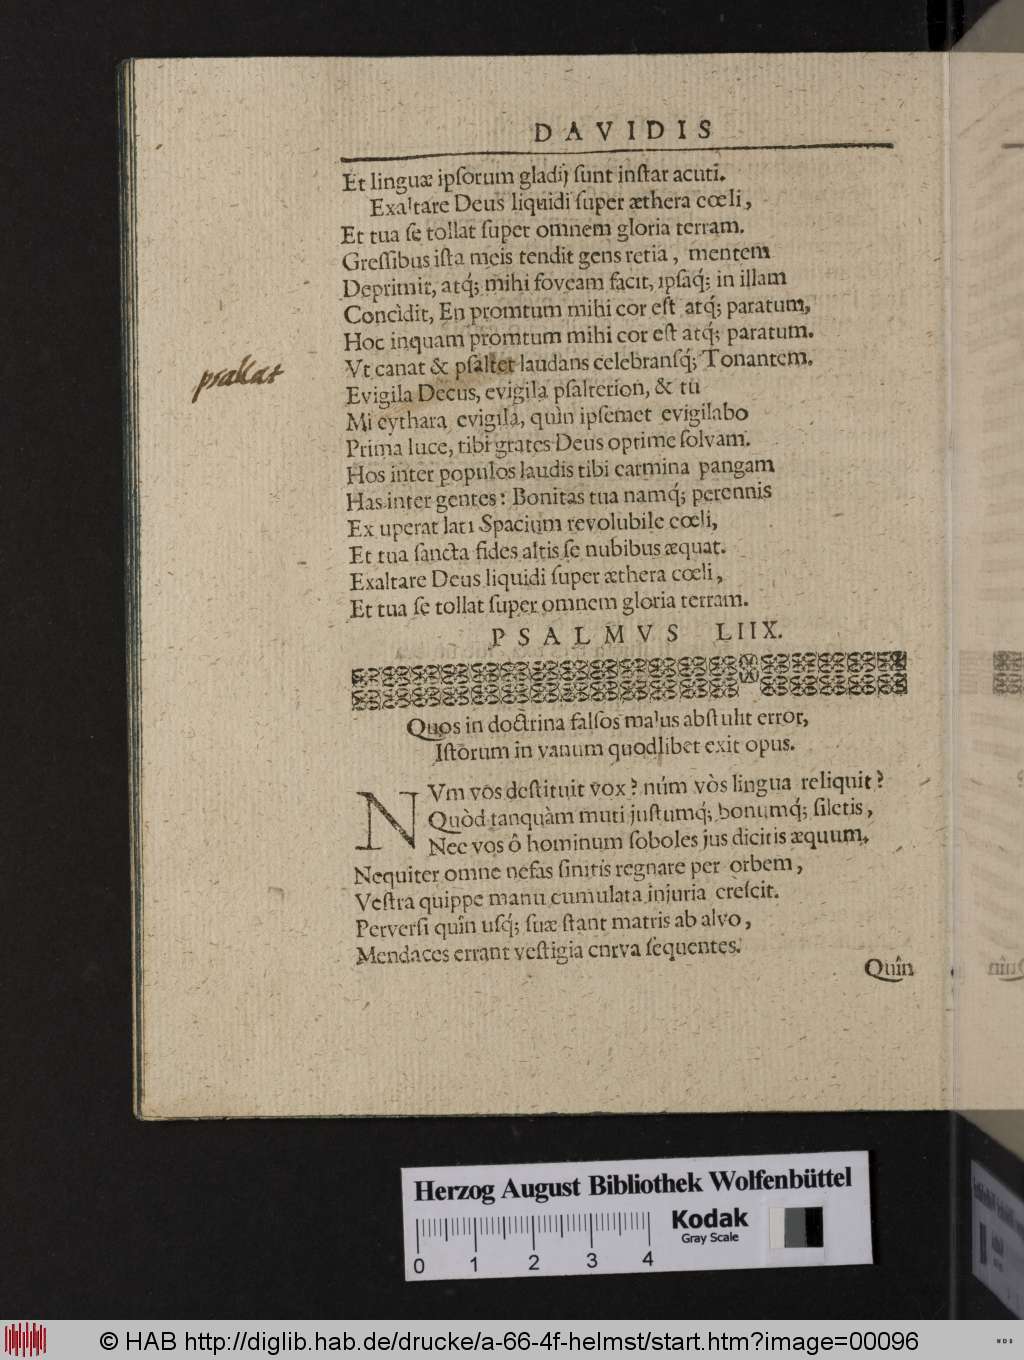 DAVIDIS
Et linguæ ipſorum gladij ſunt inſtar acuti.
Exaltare Deus liquidi ſuper æthera cœli,
Et tua ſe tollat ſuper omnem gloria terram.
Greſſibus iſta meis tendit gens retia, mentem
Deprimit, atq́; mihi foveam facit, ipſaq́; in illam
Concìdit, En promtum mihi cor eſt atq́; paratum,
Hoc inquam promtum mihi cor eſt atq́; paratum.
Vt canat & pſaltet laudans celebransq́; Tonantem.
psallat
Evigila Decus, evigila pſalterion, & tu
Mi cythara evigila, quìn ipſemet evigilabo
Prima luce, tibi grates Deus optime ſolvam.
Hos inter populos laudis tibi carmina pangam
Has inter gentes: Bonitas tua namq́; perennis
Ex uperat lati Spacium revolubile cœli,
Et tua ſancta fides altis ſe nubibus æquat.
Exaltare Deus liquidi ſuper æthera cœli,
Et tua ſe tollat ſuper omnem gloria terram.
PSALMVS LIIX.
Quos in doctrina falſos malus abſtulit error,
Iſtorum in vanum quodlibet exit opus.
NVm vos deſtituit vox? núm vòs lingua reliquit?
Quòd tanquàm muti juſtumq́; bonumq́; ſiletis,
Nec vos ô hominum ſoboles jus dicitis æquum,
Nequiter omne nefas ſinitis regnare per orbem,
Veſtra quippe manu cumulata injuria creſcit.
Perverſi quîn uſq́; ſuæ ſtant matris ab alvo,
Mendaces errant veſtigia cnrva ſequentes.
Quîn
Herzog August Bibliothek Wolfenbüttel
Kodak
Gray Scale
0 1 2 3 4
© HAB http://diglib.hab.de/drucke/a-66-4f-helmst/start.htm?image=00096